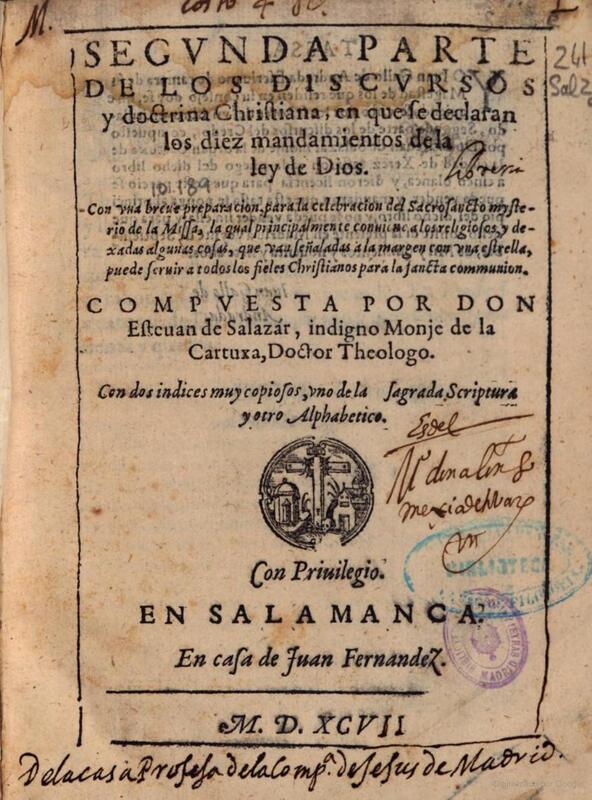 M.
SEGVNDA PARTE
DE LOS DISCVRSOS
y doctrina Christiana, en que se declaran
los diez mandamientos de la
ley de Dios.
241
Salz
10189
Con vna breue preparacion, para la celebracion del Sacrosancto myste-
rio de la Missa, la qual principalmente conuiene a los religiosos, y de-
xadas algunas cosas, que van señaladas a la margen con vna estrella,
puede seruir a todos los fieles Christianos para la sancta communion.
COMPVESTA POR DON
Esteuan de Salazar, indigno Monje de la
Cartuxa, Doctor Theologo.
Con dos indices muy copiosos, vno de la sagrada Scriptura
y otro Alphabetico.
Es del
Con Priuilegio.
BIBLIOTECA
EN SALAMANCA.
En casa de Juan Fernandez.
MADRID
M. D. XCVII
De la casa Profesa de la Comp.ª de Jesus de Madrid.